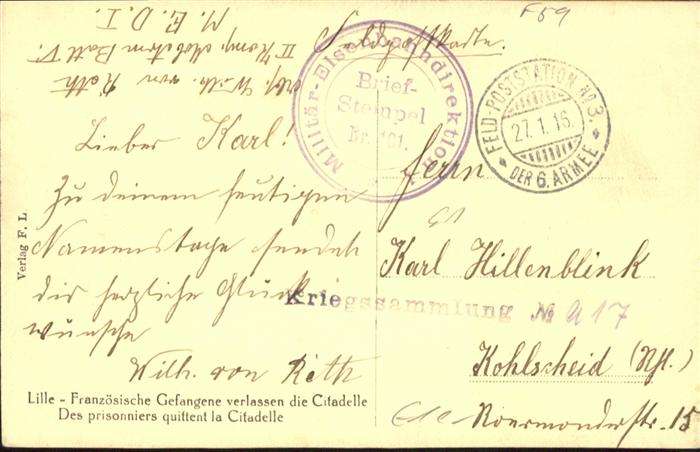 F59
Feldpostkarte.
Abs. Wilh. von Roth
II Komp. Arbeiter Batl V.
M. E. D. I.
Militär-Eisenbahndirektion
Brief-
Stempel
Nr. 101.
FELD-POSTSTATION No 3.
27.1.16.
DER 6. ARMEE
Lieber Karl!
Zu deinem heutigen
Namenstage sendet
dir herzliche Glück
wünsche
Wilh. von Roth
Herrn
Karl Hillenblink
Kriegssammlung No a 17
Kohlscheid (Rhl.)
Roermonderstr. 15
Verlag F. L
Lille - Französische Gefangene verlassen die Citadelle
Des prisonniers quittent la Citadelle